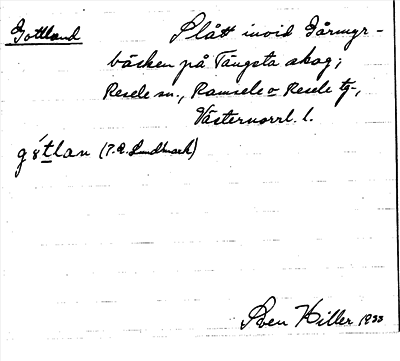 Gottland
Slått invid Gårmyr-
bäcken på Tängsta skog;
Resele sn., Ramsele o Resele tg.,
Västernorrl. l.
gótlan (P.A. Lundmark)
Sven Hiller 1933